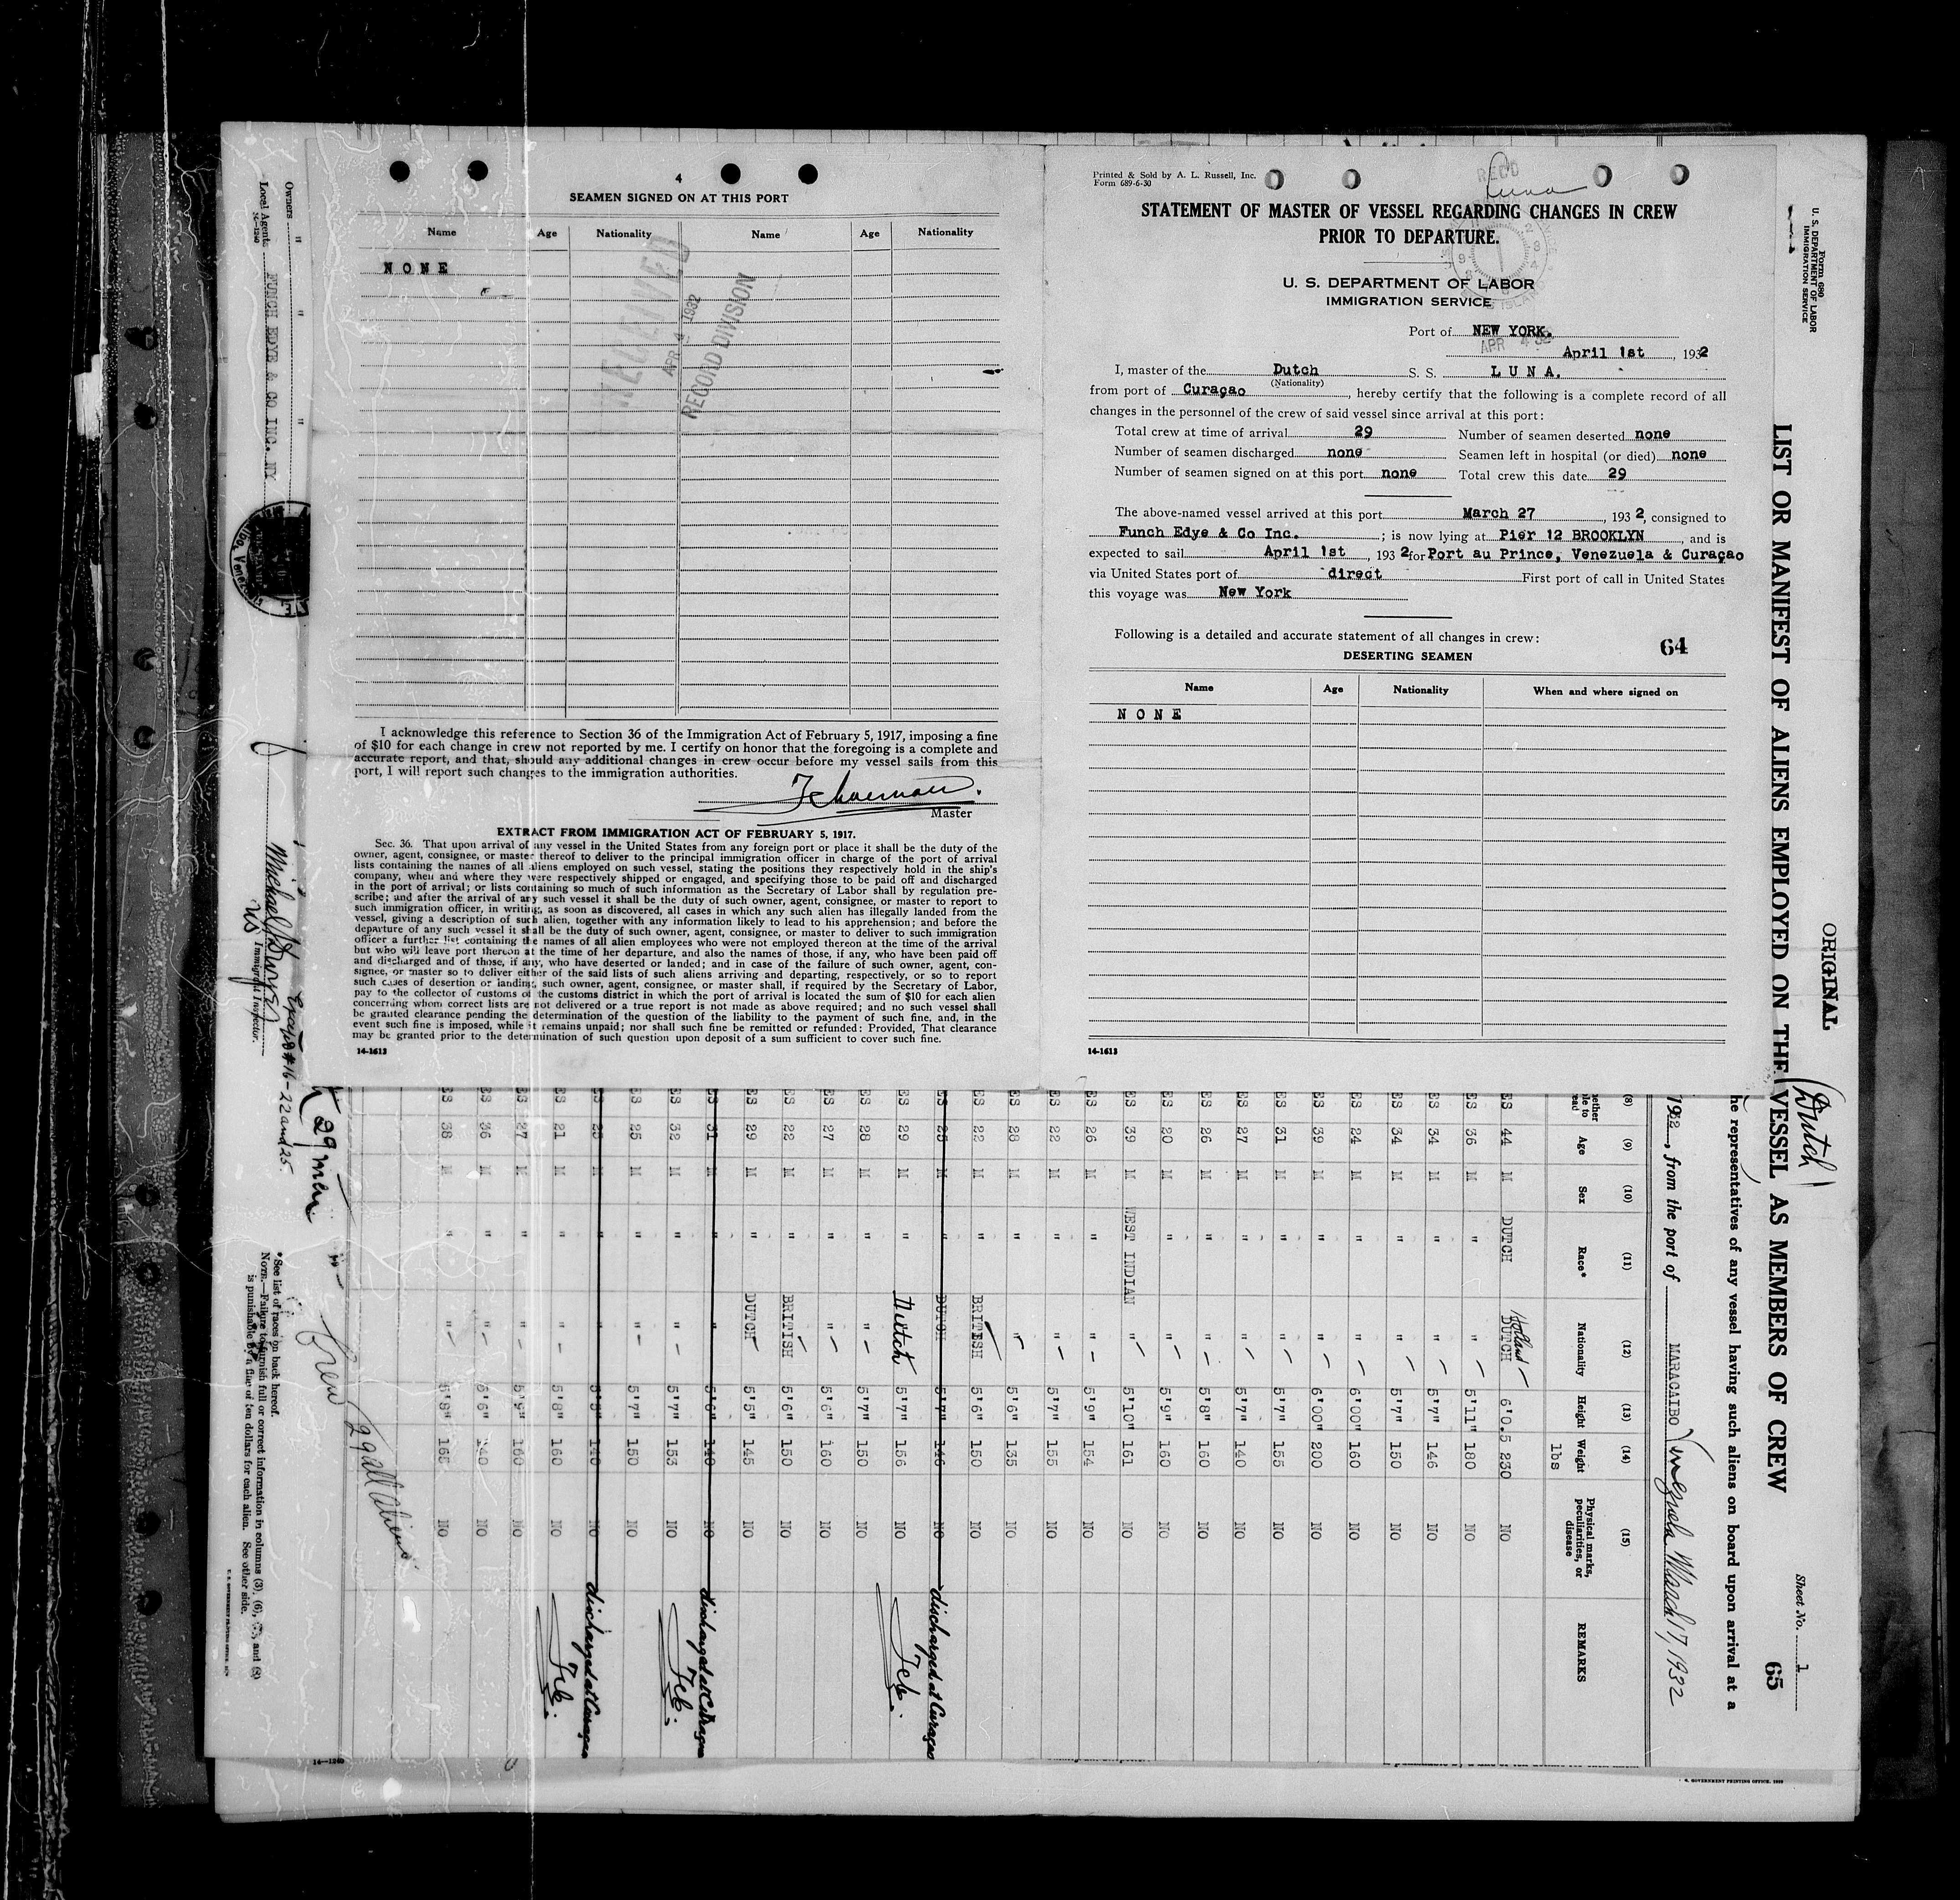 4
SEAMEN SIGNED ON AT THIS PORT
Name Age Nationality Name Age Nationality
NONE
RECEIVED
APR 4 1932
RECORD DIVISION
I acknowledge this reference to Section 36 of the Immigration Act of February 5, 1917, imposing a fine
of $10 for each change in crew not reported by me. I certify on honor that the foregoing is a complete and
accurate report, and that, should any additional changes in crew occur before my vessel sails from this
port, I will report such changes to the immigration authorities.
Master
EXTRACT FROM IMMIGRATION ACT OF FEBRUARY 5, 1917.
Sec. 36. That upon arrival of any vessel in the United States from any foreign port or place it shall be the duty of the
owner, agent, consignee, or master thereof to deliver to the principal immigration officer in charge of the port of arrival
lists containing the names of all aliens employed on such vessel, stating the positions they respectively hold in the ship's
company, when and where they were respectively shipped or engaged, and specifying those to be paid off and discharged
in the port of arrival; or lists containing so much of such information as the Secretary of Labor shall by regulation pre-
scribe; and after the arrival of any such vessel it shall be the duty of such owner, agent, consignee, or master to report to
such immigration officer, in writing, as soon as discovered, all cases in which any such alien has illegally landed from the
vessel, giving a description of such alien, together with any information likely to lead to his apprehension; and before the
departure of any such vessel it shall be the duty of such owner, agent, consignee, or master to deliver to such immigration
officer a further list containing the names of all alien employees who were not employed thereon at the time of the arrival
but who will leave port thereon at the time of her departure, and also the names of those, if any, who have been paid off
and discharged and of those, if any, who have deserted or landed; and in case of the failure of such owner, agent, con-
signee, or master so to deliver either of the said lists of such aliens arriving and departing, respectively, or so to report
such cases of desertion or landing, such owner, agent, consignee, or master shall, if required by the Secretary of Labor,
pay to the collector of customs of the customs district in which the port of arrival is located the sum of $10 for each alien
concerning whom correct lists are not delivered or a true report is not made as above required; and no such vessel shall
be granted clearance pending the determination of the question of the liability to the payment of such fine, and, in the
event such fine is imposed, while it remains unpaid; nor shall such fine be remitted or refunded: Provided, That clearance
may be granted prior to the determination of such question upon deposit of a sum sufficient to cover such fine.
14-1613
Printed & Sold by A. L. Russell, Inc.
Form 689-6-30
REC'D
Luna
STATEMENT OF MASTER OF VESSEL REGARDING CHANGES IN CREW
PRIOR TO DEPARTURE.
U. S. DEPARTMENT OF LABOR
IMMIGRATION SERVICE
Port of NEW YORK.
APR 4 32
April 1st, 1932
I, master of the Dutch S. S. LUNA.
(Nationality)
from port of Curaçao, hereby certify that the following is a complete record of all
changes in the personnel of the crew of said vessel since arrival at this port:
Total crew at time of arrival 29 Number of seamen deserted none
Number of seamen discharged none Seamen left in hospital (or died) none
Number of seamen signed on at this port none Total crew this date 29
The above-named vessel arrived at this port March 27, 1932, consigned to
Funch Edye & Co Inc. ; is now lying at Pier 12 BROOKLYN, and is
expected to sail April 1st, 1932 for Port au Prince, Venezuela & Curaçao
via United States port of direct First port of call in United States
this voyage was New York
Following is a detailed and accurate statement of all changes in crew: 64
DESERTING SEAMEN
Name Age Nationality When and where signed on
NONE
14-1613
Form 680
U. S. DEPARTMENT OF LABOR
IMMIGRATION SERVICE
ORIGINAL
(Dutch)
Sheet No. 1
LIST OR MANIFEST OF ALIENS EMPLOYED ON THE VESSEL AS MEMBERS OF CREW 65
he representatives of any vessel having such aliens on board upon arrival at a
1932, from the port of MARACAIBO Venezuela March 17, 1932
(8) (9) (10) (11) (12) (13) (14) (15)
Age Sex Race* Nationality Height Weight Physical marks, peculiarities, or disease REMARKS
lbs
ES 44 M DUTCH Holland DUTCH 6'0.5 230 NO
ES 36 M " " 5'11" 180 NO
ES 34 M " " 5'7" 146 NO
ES 34 M " " 5'7" 150 NO
ES 24 M " " 6'00" 160 NO
ES 39 M " " 6'00" 200 NO
ES 31 M " " 5'7" 155 NO
ES 27 M " " 5'7" 140 NO
ES 26 M " " 5'8" 160 NO
ES 20 M " " 5'9" 160 NO
ES 39 M WEST INDIAN " 5'10" 161 NO
ES 26 M " " 5'9" 154 NO
ES 22 M " " 5'7" 155 NO
ES 28 M " " 5'6" 135 NO
ES 22 M " BRITISH 5'6" 150 NO
ES 25 M " DUTCH 5'7" 146 NO discharged at Curaçao
ES 29 M " Dutch 5'7" 156 NO
ES 28 M " " 5'7" 150 NO
ES 27 M " " 5'6" 160 NO
ES 22 M " BRITISH 5'6" 150 NO
ES 29 M " DUTCH 5'5" 145 NO
ES 31 M " " 5'6" 140 NO discharged at Curaçao
ES 32 M " " 5'7" 153 NO
ES 25 M " " 5'7" 150 NO
ES 25 M " " 5'5" 140 NO discharged at Curaçao
ES 21 M " " 5'8" 160 NO
ES 27 M " " 5'9" 160 NO
ES 36 M " " 5'6" 140 NO
ES 38 M " " 5'8" 165 NO
29 men
Crew 29 all aliens
*See list of races on back hereof.
NOTE.—Failure to furnish full or correct information in columns (3), (6), (7), and (8)
is punishable by a fine of ten dollars for each alien. See other side.
Owners " " "
Local Agents FUNCH EDYE & CO INC. NY
14-1240
#16-22 and 25.
Immigrant Inspector.
14-1240
U. S. GOVERNMENT PRINTING OFFICE